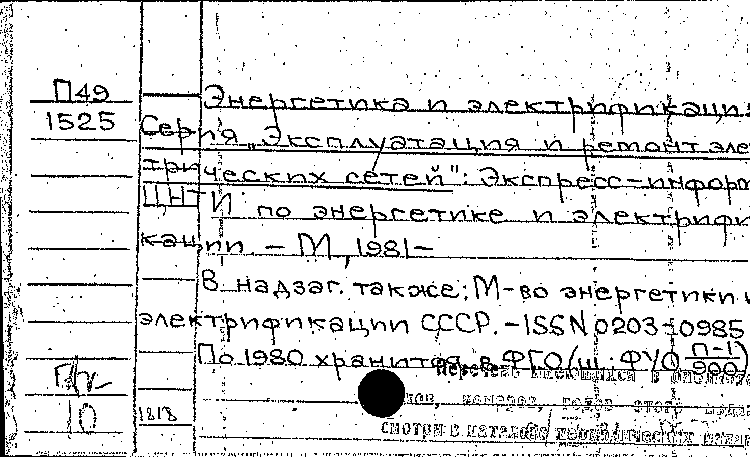 П49
1525
Энергетика и электрификация.
Серия „Эксплуатация и ремонт элек
трических сетей": Экспресс-информ
ЦНТИ по энергетике и электрифи
кации. - М, 1981-
В надзаг. также: М-во энергетики и
электрификации СССР. - ISSN 0203-0985
По 1980 хранится в ФГО/ш. ФУО П-1)
900
Перечень имеющихся в
10
1818
номеров, годов этого
смотри в каталоге периодических